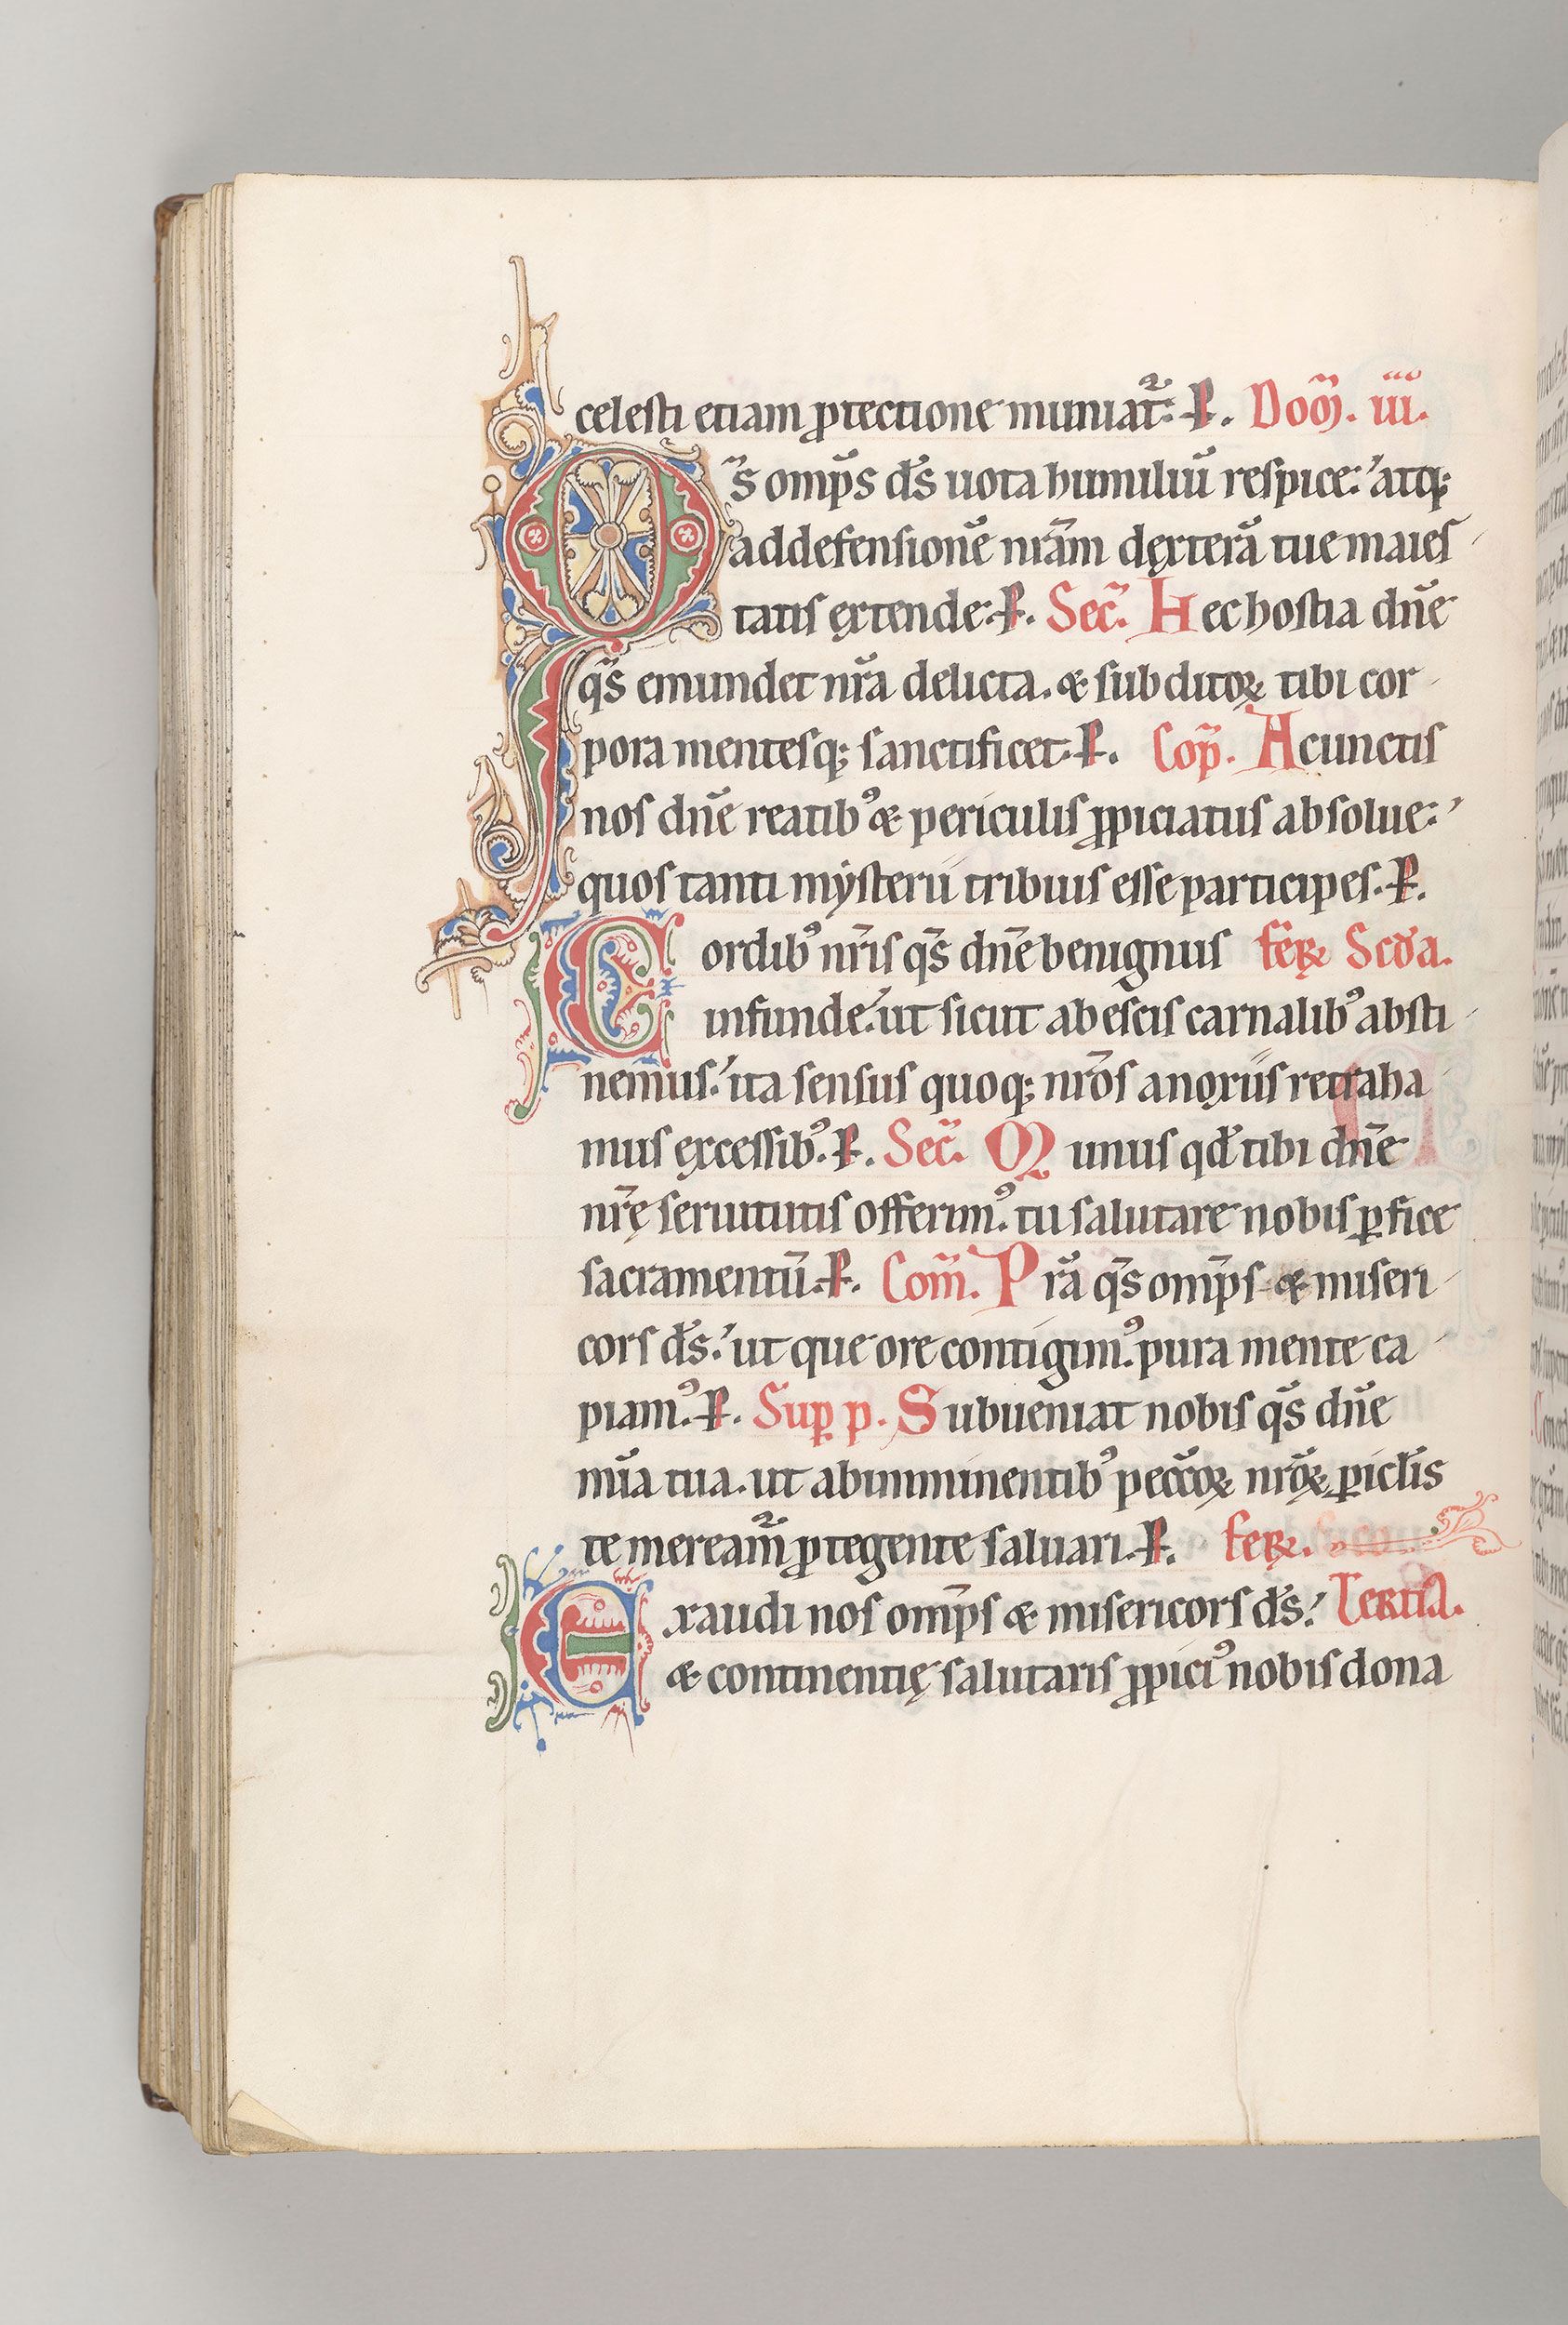 celesti etiam ꝓtectione muniat᷑. P. Dom̃. iii.
Q̃s omp̃s ds̃ uota humiliũ respice: atq;
ad defensionẽ nrãm dexterã tue maies
tatis extende. P. Secr̃. Hec hostia dnẽ
qs̃ emundet nrã delicta. & subditoꝝ tibi cor
pora mentesq; sanctificet. P. Cop̃. A cunctis
nos dnẽ reatib9 & periculis ꝓpiciatus absolue:
quos tanti mẏsterii tribuis esse participes. P.
Cordib9 nrĩs qs̃ dnẽ benignus feꝝ Scďa.
infunde. ut sicut ab escis carnalib9 absti
nemus. ita sensus quoq; nrõs a noxiis retraha
mus excessib9. P. Secr̃. Munus qđ tibi dnẽ
nrę̃ seruitutis offerim9. tu salutare nobis ꝑfice
sacramentũ. P. Com̃. Prã qs̃ omp̃s & miseri
cors ds̃. ut que ore contigim9. pura mente ca
piam9. P. Suꝑ p. Subueniat nobis qs̃ dnẽ
mĩa tua. ut ab imminentib9 pecc̃oꝝ nrõꝝ ꝑiclĩs
te meream᷑ ꝓtegente saluari. P. feꝝ.
Exaudi nos omp̃s & misericors ds̃. Tertia.
& continentię salutaris ꝓpici9 nobis dona